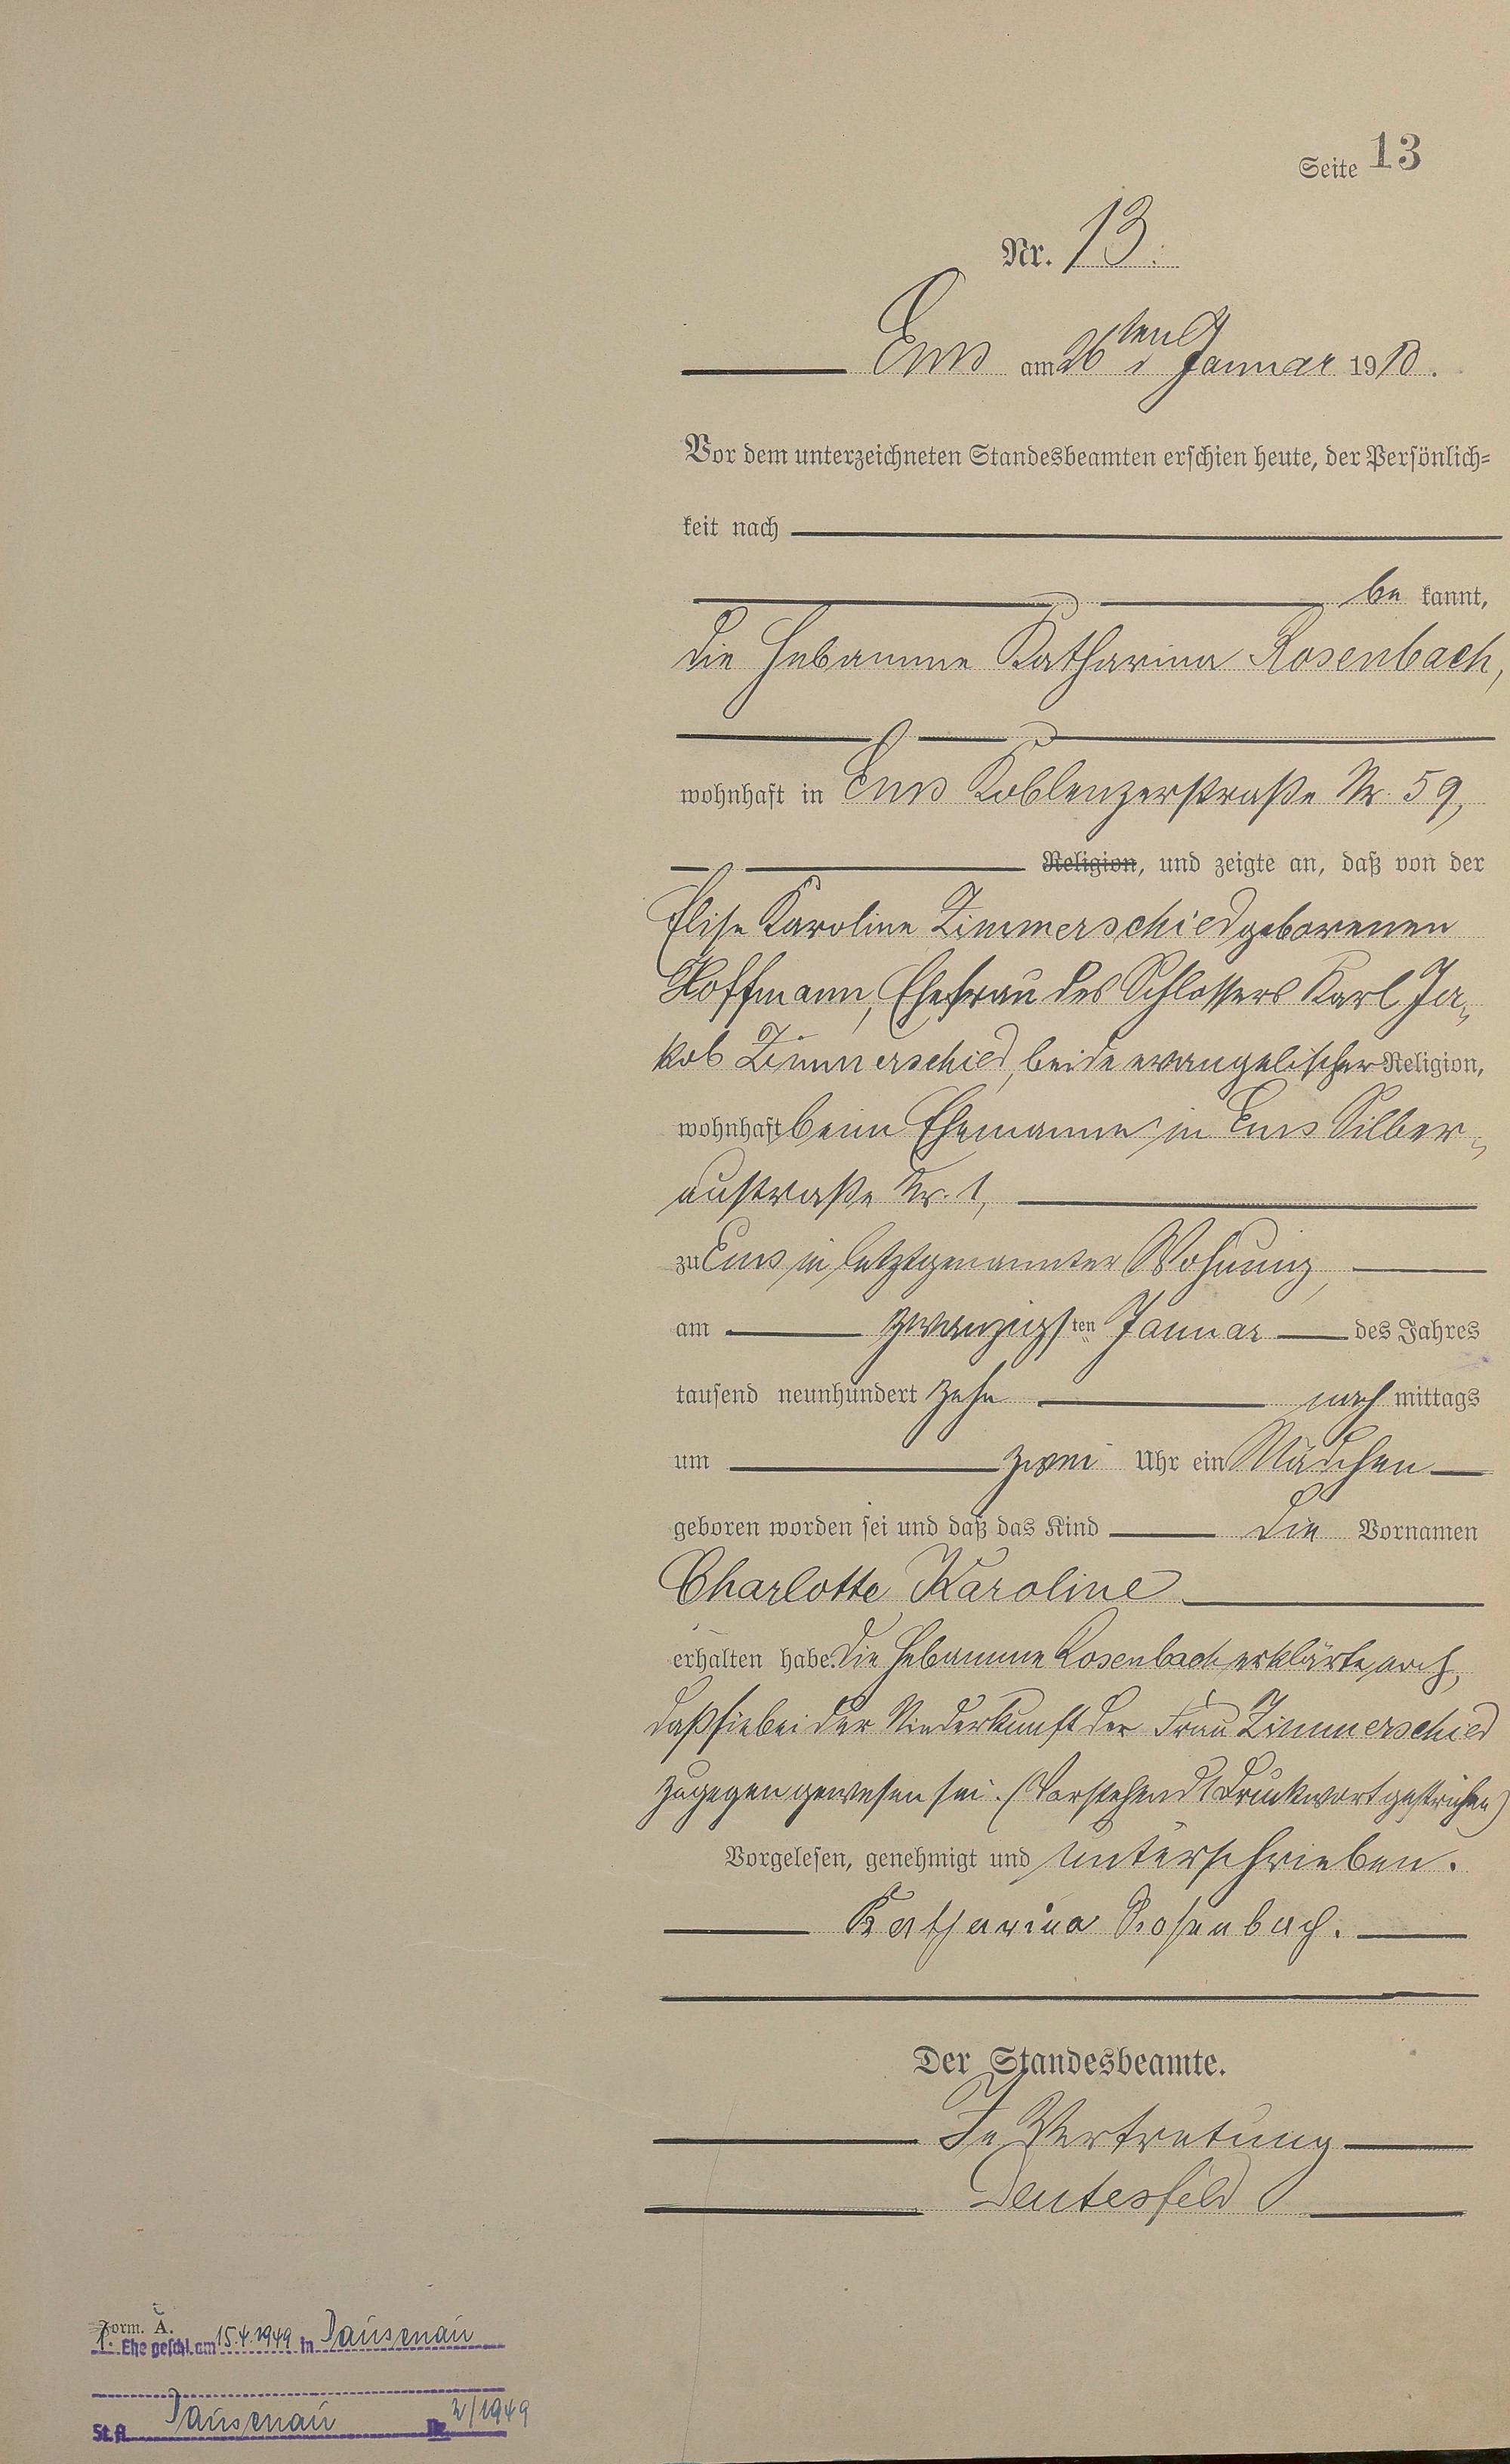 Seite 13
Nr. 13.
Ems am 26ten Januar 1910.
Vor dem unterzeichneten Standesbeamten erschien heute, der Persönlich=
keit nach
be kannt,
die Hebamme Katharina Rosenbach,
wohnhaft in Ems Koblenzerstraße Nr. 59,
Religion, und zeigte an, daß von der
Elise Karoline Zimmerschied geborenen
Hoffmann, Ehefrau des Schlossers Karl Ja„
kob Zimmerschied, beide evangelischer Religion,
wohnhaft beim Ehemanne in Ems Silber„
austraße Nr. 1,
zu Ems in letztgenannter Wohnung,
am zwanzigsten Januar des Jahres
tausend neunhundert zehn nach mittags
um zwei Uhr ein Mädchen
geboren worden sei und daß das Kind die Vornamen
Charlotte Karoline
erhalten habe. Die Hebamme Rosenbach erklärte noch,
daß sie bei der Niederkunft der Frau Zimmerschied
zugegen gewesen sei. (Vorstehend 1 Druckwort gestrichen)
Vorgelesen, genehmigt und unterschrieben.
Katharina Rosenbach.
Der Standesbeamte.
In Vertretung
Deutesfeld
Form. A.
1. Ehe geschl. am 15.4.1949 in Dausenau
St. A. Dausenau Nr. 2/1949